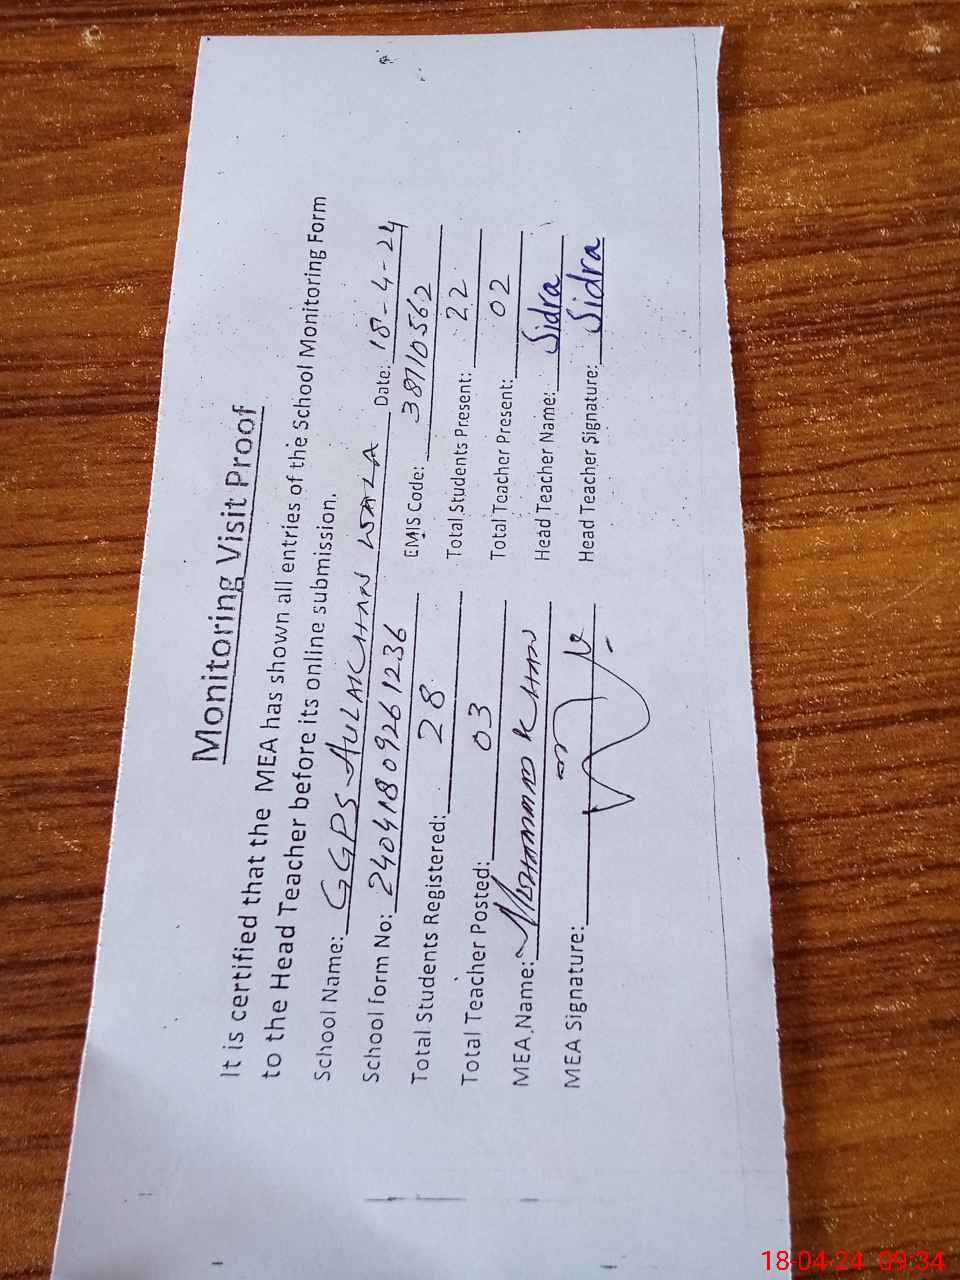 Monitoring Visit Proof
It is certified that the MEA has shown all entries of the School Monitoring Form
to the Head Teacher before its online submission.
School Name: GGPS AULAKHAN WALA Date: 18-4-24
School form No: 24041809261236 EMIS Code: 38710562
Total Students Registered: 28 Total Students Present: 22
Total Teacher Posted: 03 Total Teacher Present: 02
MEA Name: MUHAMMAD KHAN Head Teacher Name: Sidra
MEA Signature: Head Teacher Signature: Sidra
18-04-24 09:34